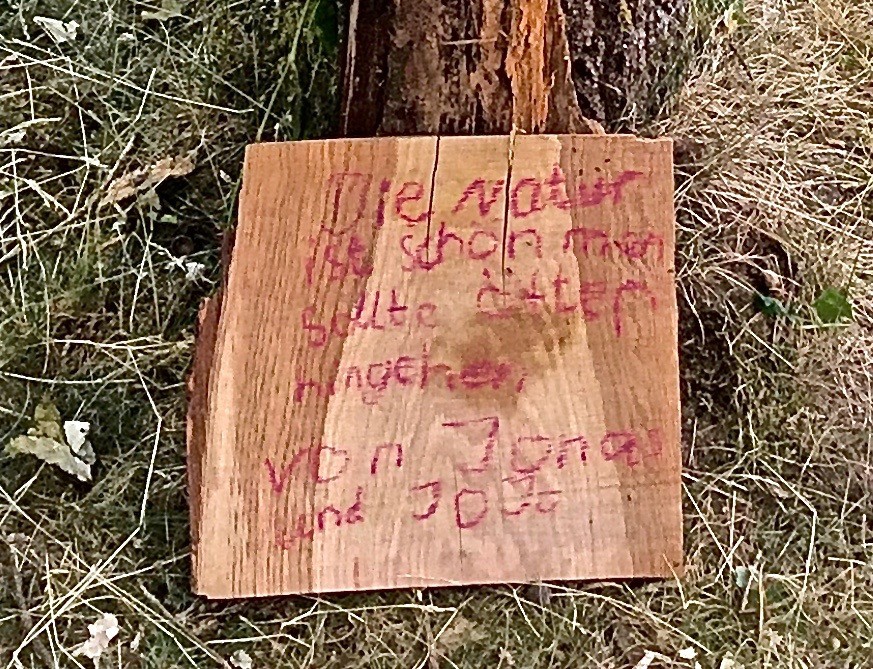 Die Natur
ist schön men
sollte öfter
hingehen,
von Jonas
und JoJo